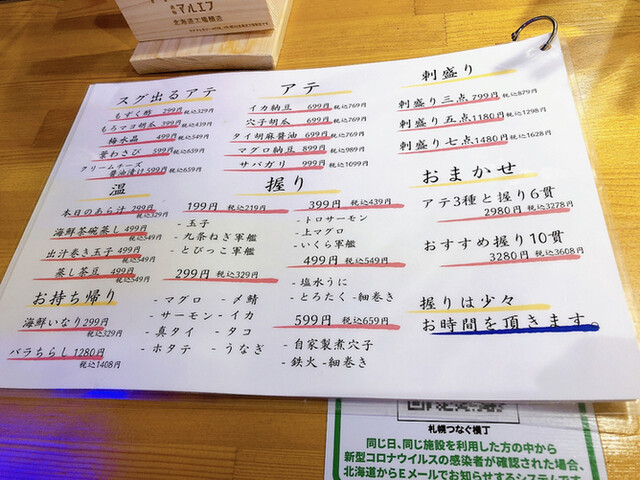 マルエフ
北海道工場醸造
スグ出るアテ
もずく酢 299円 税込329円
もろマヨ胡瓜 399円 税込439円
梅水晶 499円 税込549円
葉わさび 599円 税込659円
クリームチーズ
醤油漬け 599円 税込659円
アテ
イカ納豆 699円 税込769円
穴子胡瓜 699円 税込769円
タイ胡麻醤油 699円 税込769円
マグロ納豆 899円 税込989円
サバガリ 999円 税込1099円
刺盛り
刺盛り三点 799円 税込879円
刺盛り五点 1180円 税込1298円
刺盛り七点 1480円 税込1628円
温
本日のあら汁 299円
税込329円
海鮮茶碗蒸し 499円
税込549円
出汁巻き玉子 499円
税込549円
蒸し茶豆 499円
税込549円
お持ち帰り
海鮮いなり 299円
税込329円
バラちらし 1280円
税込1408円
握り
199円 税込219円
- 玉子
- 九条ねぎ軍艦
- とびっこ軍艦
299円 税込329円
- マグロ - 〆鯖
- サーモン - イカ
- 真タイ - タコ
- ホタテ - うなぎ
399円 税込439円
- トロサーモン
- 上マグロ
- いくら軍艦
499円 税込549円
- 塩水うに
- とろたく - 細巻き
599円 税込659円
- 自家製煮穴子
- 鉄火 - 細巻き
おまかせ
アテ3種と握り6貫
2980円 税込3278円
おすすめ握り10貫
3280円 税込3608円
握りは少々
お時間を頂きます。
札幌つなぐ横丁
同じ日、同じ施設を利用した方の中から
新型コロナウイルスの感染者が確認された場合、
北海道からEメールでお知らせするシステムです